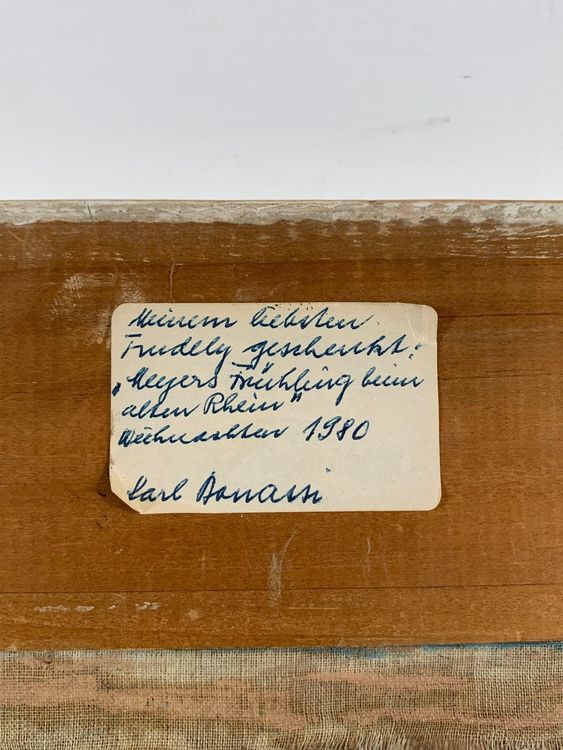 Meinem liebsten
Trudely geschenkt:
„Meyers Frühling beim
alten Rhein"
Weihnachten 1980
Karl Bonassi